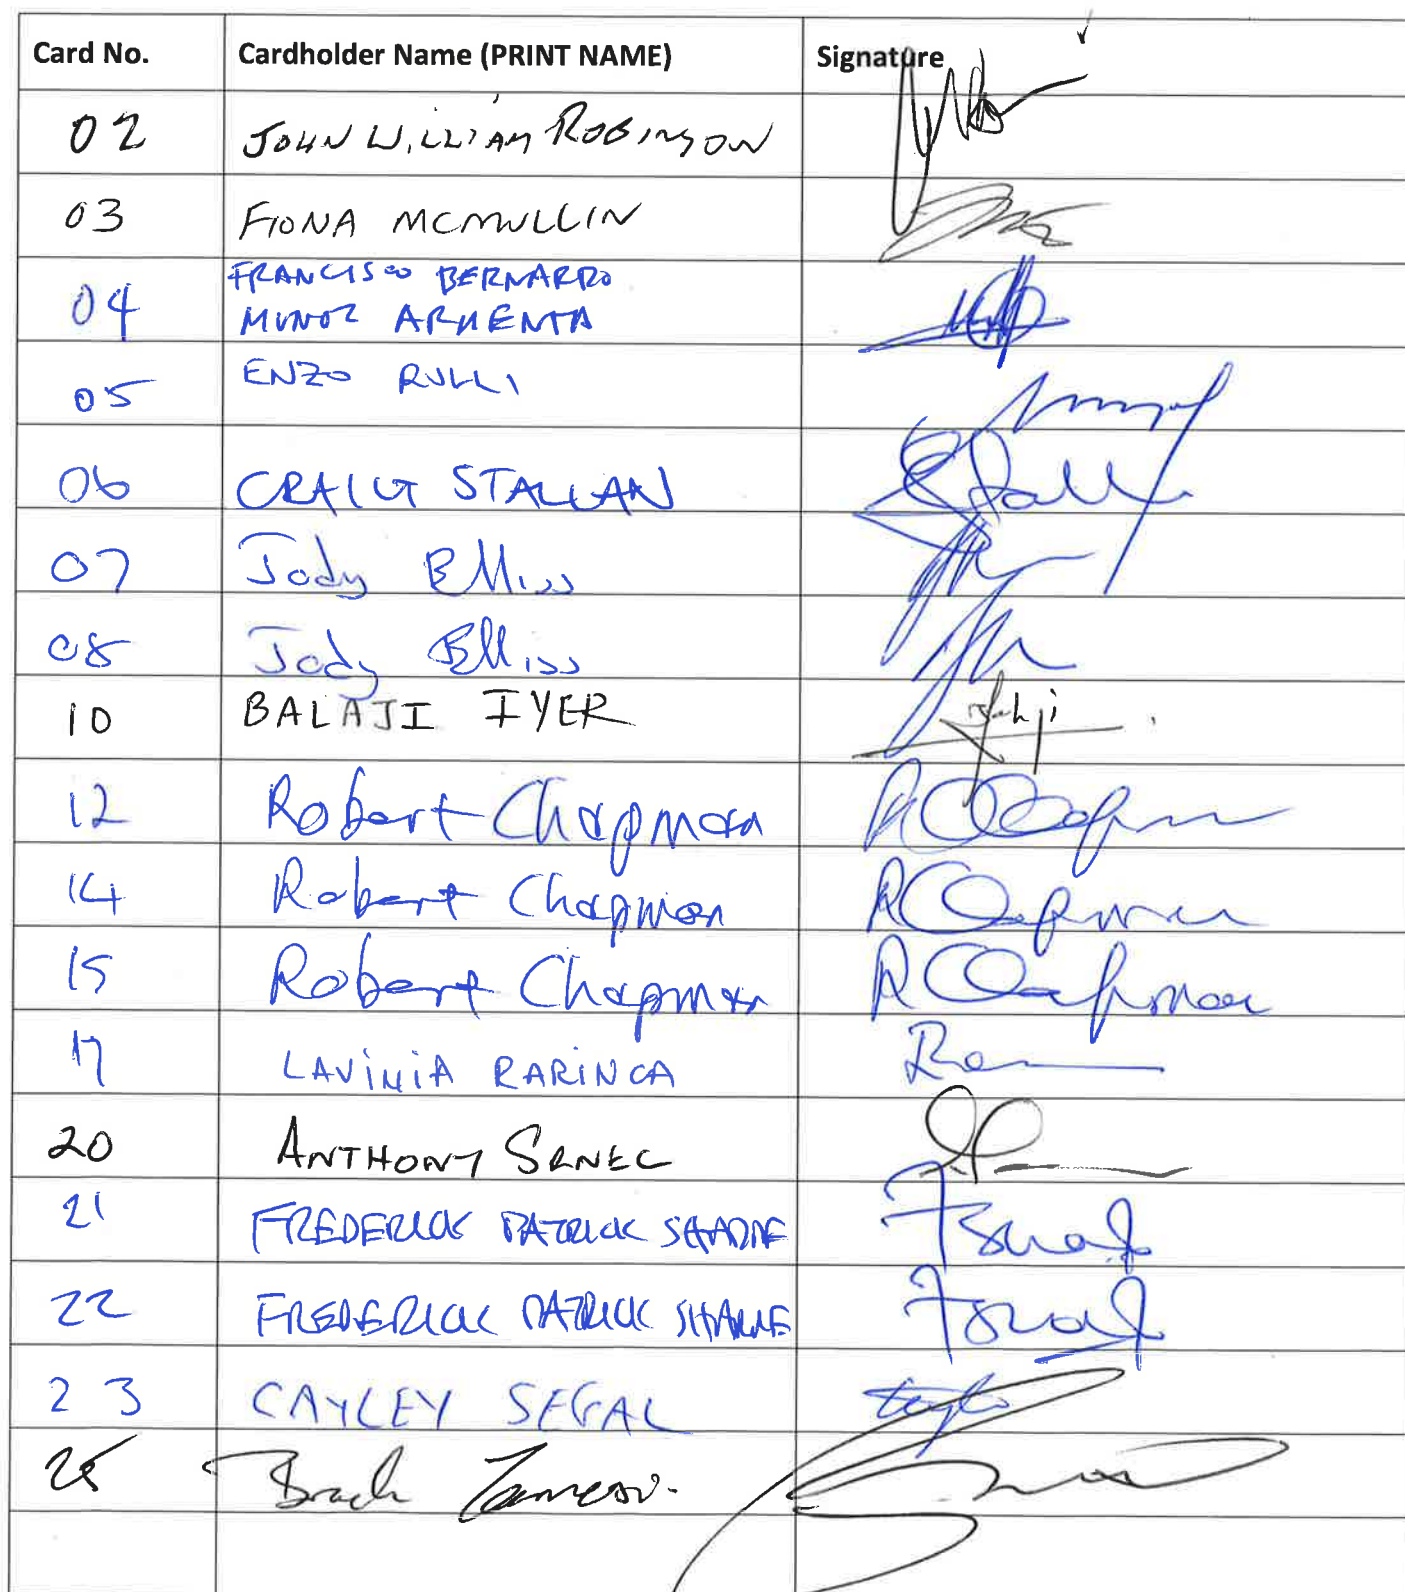 Card No. Cardholder Name (PRINT NAME) Signature
02 JOHN WILLIAM ROBINSON
03 FIONA MCMULLIN
04 FRANCISCO BERNARDO
MUNOZ ARMENTA
05 ENZO RULLI
06 CRAIG STALLAN
07 Jody Elliss
08 Jody Elliss
10 BALAJI IYER Balaji
12 Robert Chapman RChapman
14 Robert Chapman RChapman
15 Robert Chapman RChapman
17 LAVINIA RARINCA
20 ANTHONY SRNEC
21 FREDERICK PATRICK
22 FREDERICK PATRICK
23 CAYLEY SEGAL
25